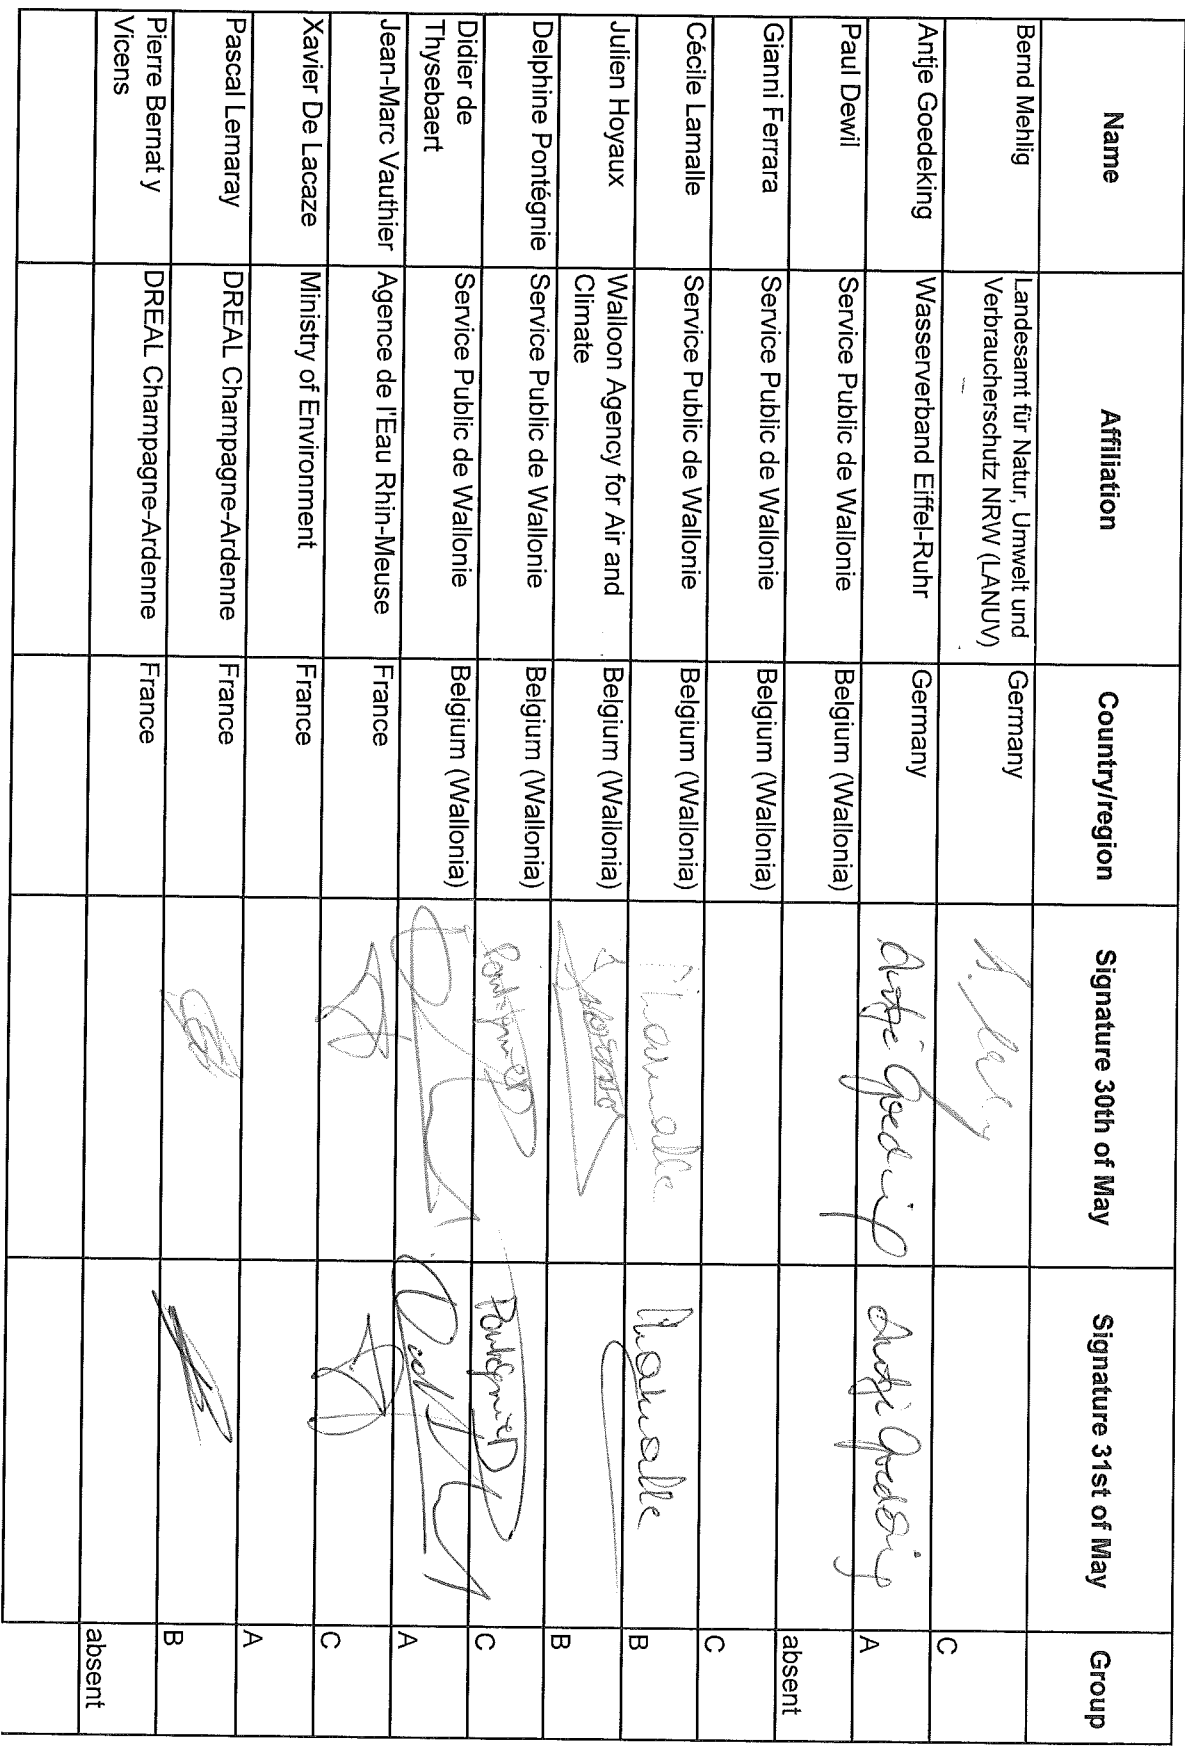 Name Affiliation Country/region Signature 30th of May Signature 31st of May Group
Bernd Mehlig Landesamt für Natur, Umwelt und Germany C
Verbraucherschutz NRW (LANUV)
Antje Goedeking Wasserverband Eiffel-Ruhr Germany Antje A
Paul Dewil Service Public de Wallonie Belgium (Wallonia) absent
Gianni Ferrara Service Public de Wallonie Belgium (Wallonia) C
Cécile Lamalle Service Public de Wallonie Belgium (Wallonia) B
Julien Hoyaux Walloon Agency for Air and Belgium (Wallonia) B
Climate
Delphine Pontégnie Service Public de Wallonie Belgium (Wallonia) C
Didier de Service Public de Wallonie Belgium (Wallonia) A
Thysebaert
Jean-Marc Vauthier Agence de l'Eau Rhin-Meuse France C
Xavier De Lacaze Ministry of Environment France A
Pascal Lemaray DREAL Champagne-Ardenne France B
Pierre Bernat y DREAL Champagne-Ardenne France absent
Vicens